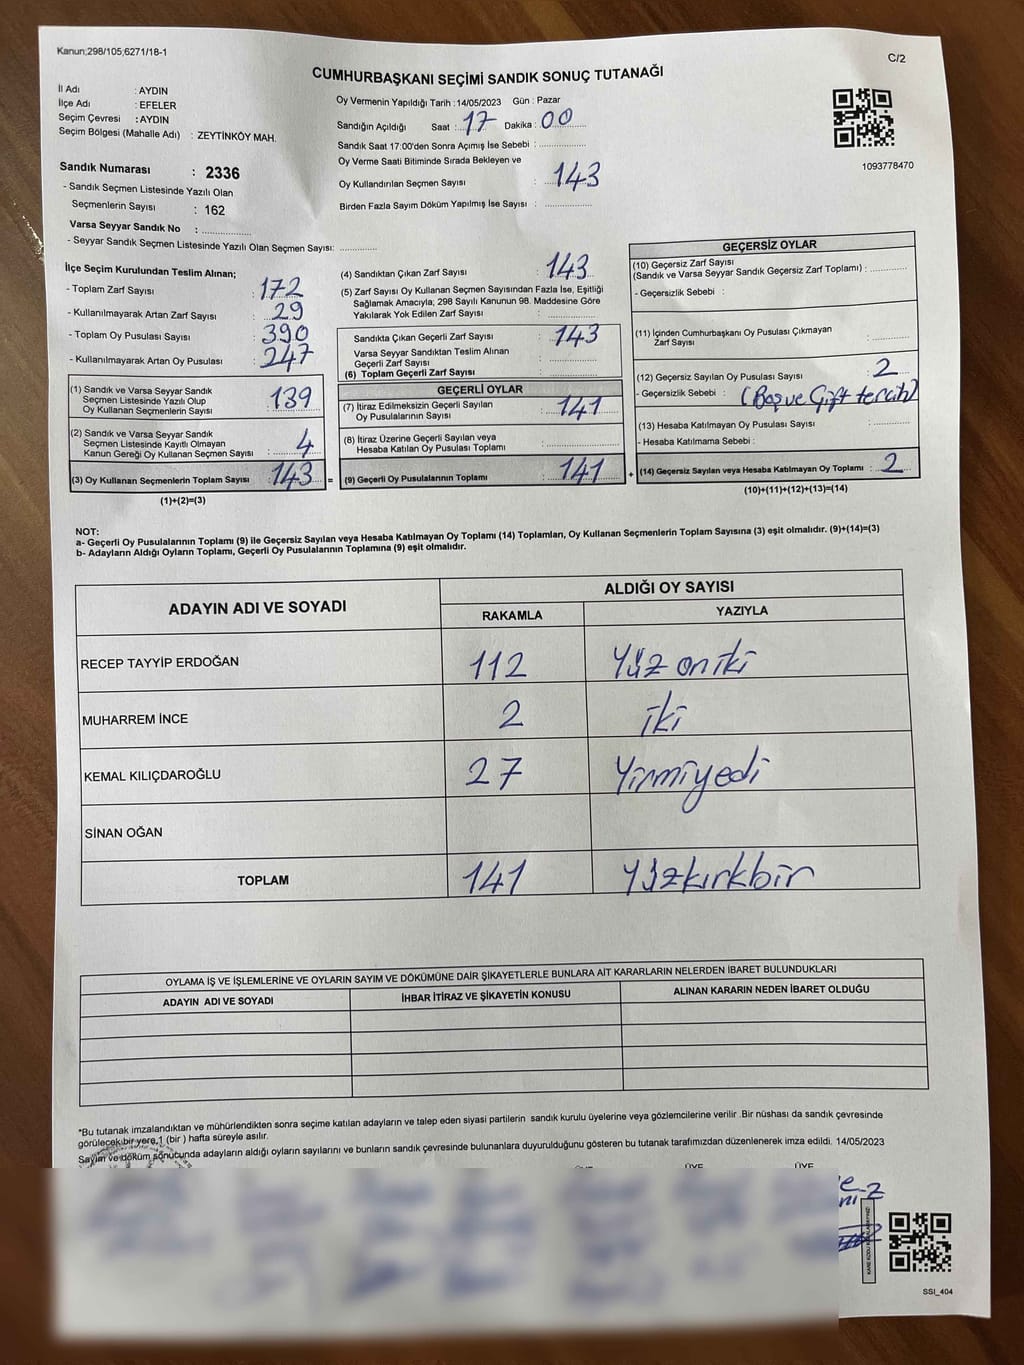 Kanun;298/105;6271/18-1
C/2
CUMHURBAŞKANI SEÇİMİ SANDIK SONUÇ TUTANAĞI
İl Adı : AYDIN
İlçe Adı : EFELER
Seçim Çevresi : AYDIN
Seçim Bölgesi (Mahalle Adı) : ZEYTİNKÖY MAH.
Sandık Numarası : 2336
- Sandık Seçmen Listesinde Yazılı Olan
Seçmenlerin Sayısı : 162
Varsa Seyyar Sandık No : ..............
- Seyyar Sandık Seçmen Listesinde Yazılı Olan Seçmen Sayısı: ............
Oy Vermenin Yapıldığı Tarih : 14/05/2023 Gün : Pazar
Sandığın Açıldığı Saat : 17 Dakika : 00
Sandık Saat 17:00'den Sonra Açımış İse Sebebi : ..............
Oy Verme Saati Bitiminde Sırada Bekleyen ve
Oy Kullandırılan Seçmen Sayısı : 143
Birden Fazla Sayım Döküm Yapılmış İse Sayısı : ..............
1093778470
İlçe Seçim Kurulundan Teslim Alınan;
- Toplam Zarf Sayısı : 172
- Kullanılmayarak Artan Zarf Sayısı : 29
- Toplam Oy Pusulası Sayısı : 390
- Kullanılmayarak Artan Oy Pusulası : 247
(1) Sandık ve Varsa Seyyar Sandık
Seçmen Listesinde Yazılı Olup
Oy Kullanan Seçmenlerin Sayısı : 139
(2) Sandık ve Varsa Seyyar Sandık
Seçmen Listesinde Kayıtlı Olmayan
Kanun Gereği Oy Kullanan Seçmen Sayısı : 4
(3) Oy Kullanan Seçmenlerin Toplam Sayısı : 143 =
(1)+(2)=(3)
(4) Sandıktan Çıkan Zarf Sayısı : 143
(5) Zarf Sayısı Oy Kullanan Seçmen Sayısından Fazla İse, Eşitliği
Sağlamak Amacıyla; 298 Sayılı Kanunun 98. Maddesine Göre
Yakılarak Yok Edilen Zarf Sayısı : ..............
Sandıkta Çıkan Geçerli Zarf Sayısı : 143
Varsa Seyyar Sandıktan Teslim Alınan
Geçerli Zarf Sayısı : ..............
(6) Toplam Geçerli Zarf Sayısı : ..............
GEÇERLİ OYLAR
(7) İtiraz Edilmeksizin Geçerli Sayılan
Oy Pusulalarının Sayısı : 141
(8) İtiraz Üzerine Geçerli Sayılan veya
Hesaba Katılan Oy Pusulası Toplamı : ..............
(9) Geçerli Oy Pusulalarının Toplamı : 141 +
GEÇERSİZ OYLAR
(10) Geçersiz Zarf Sayısı
(Sandık ve Varsa Seyyar Sandık Geçersiz Zarf Toplamı) : ............
- Geçersizlik Sebebi :
(11) İçinden Cumhurbaşkanı Oy Pusulası Çıkmayan
Zarf Sayısı : ............
(12) Geçersiz Sayılan Oy Pusulası Sayısı : 2
- Geçersizlik Sebebi : (Boş ve Çift tercih)
(13) Hesaba Katılmayan Oy Pusulası Sayısı : ............
- Hesaba Katılmama Sebebi :
(14) Geçersiz Sayılan veya Hesaba Katılmayan Oy Toplamı : 2
(10)+(11)+(12)+(13)=(14)
NOT:
a- Geçerli Oy Pusulalarının Toplamı (9) ile Geçersiz Sayılan veya Hesaba Katılmayan Oy Toplamı (14) Toplamları, Oy Kullanan Seçmenlerin Toplam Sayısına (3) eşit olmalıdır. (9)+(14)=(3)
b- Adayların Aldığı Oyların Toplamı, Geçerli Oy Pusulalarının Toplamına (9) eşit olmalıdır.
ADAYIN ADI VE SOYADI ALDIĞI OY SAYISI
RAKAMLA YAZIYLA
RECEP TAYYİP ERDOĞAN 112 Yüz oniki
MUHARREM İNCE 2 iki
KEMAL KILIÇDAROĞLU 27 Yirmiyedi
SİNAN OĞAN
TOPLAM 141 Yüzkırkbir
OYLAMA İŞ VE İŞLEMLERİNE VE OYLARIN SAYIM VE DÖKÜMÜNE DAİR ŞİKAYETLERLE BUNLARA AİT KARARLARIN NELERDEN İBARET BULUNDUKLARI
ADAYIN ADI VE SOYADI İHBAR İTİRAZ VE ŞİKAYETİN KONUSU ALINAN KARARIN NEDEN İBARET OLDUĞU
*Bu tutanak imzalandıktan ve mühürlendikten sonra seçime katılan adayların ve talep eden siyasi partilerin sandık kurulu üyelerine veya gözlemcilerine verilir .Bir nüshası da sandık çevresinde
görülecek bir yere 1 (bir ) hafta süreyle asılır.
Sayım ve döküm sonucunda adayların aldığı oyların sayılarını ve bunların sandık çevresinde bulunanlara duyurulduğunu gösteren bu tutanak tarafımızdan düzenlenerek imza edildi. 14/05/2023
ÜYE ÜYE
SSI_404